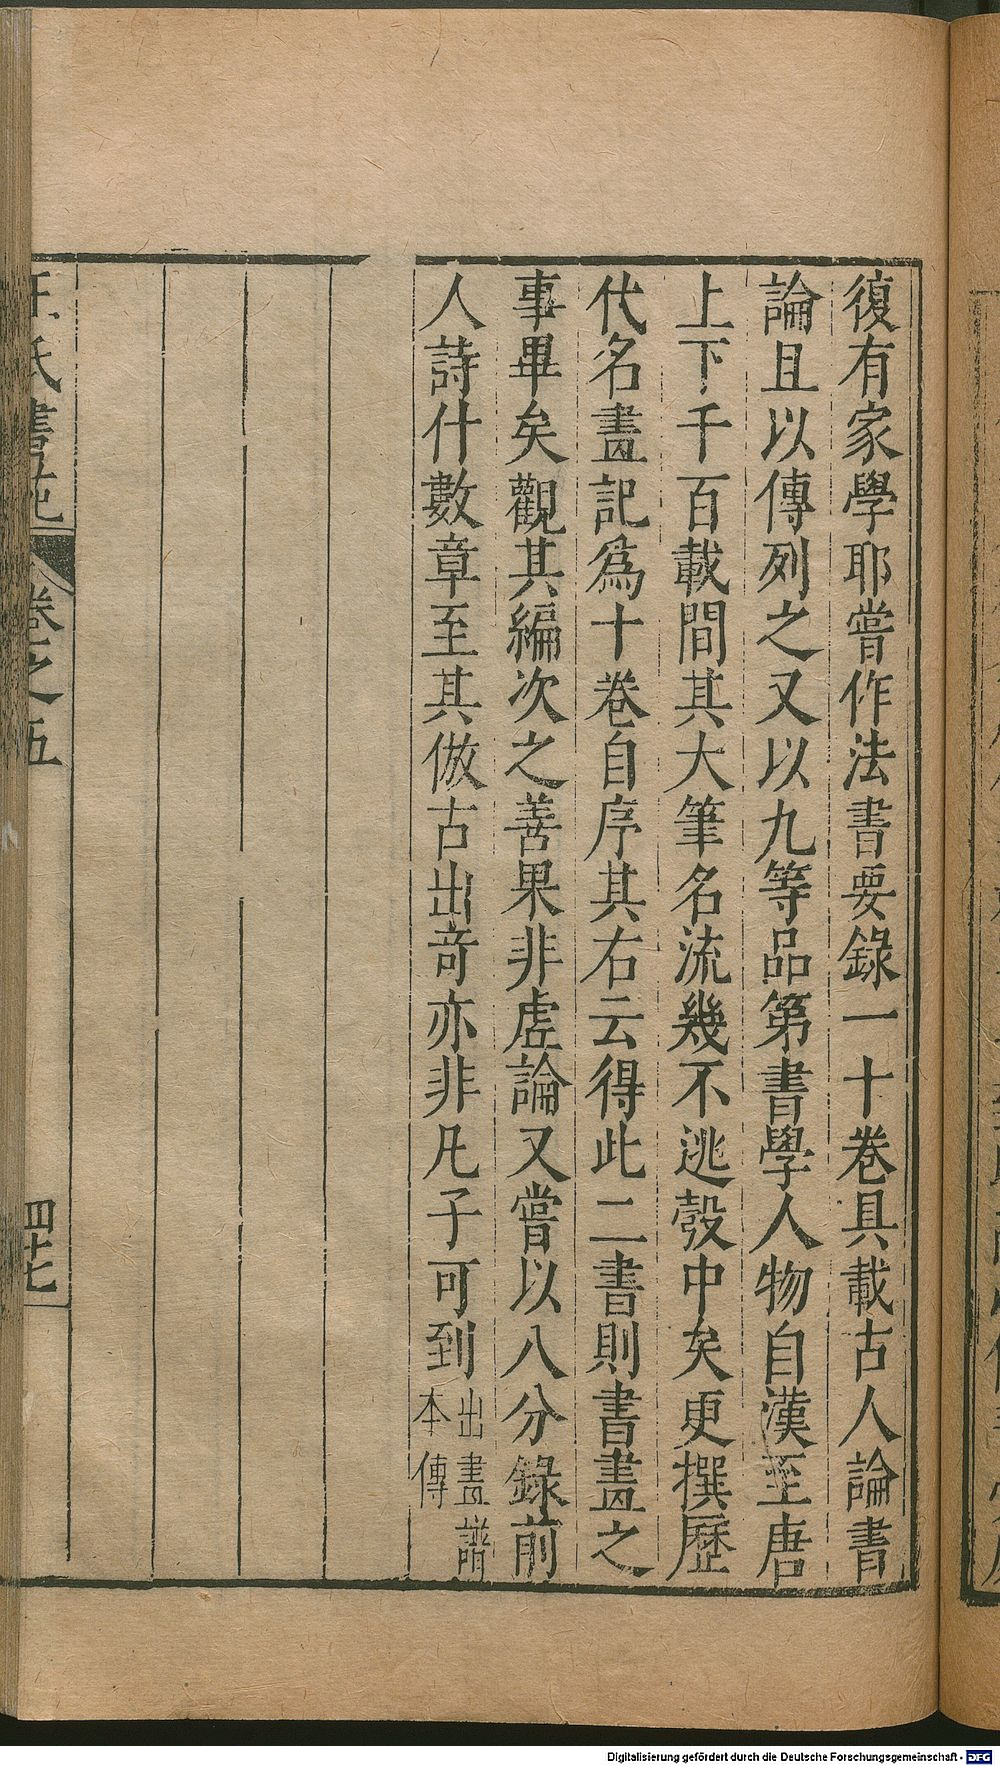 復有家學耶嘗作法書要錄一十卷具載古人論書
論且以傳列之又以九等品第書學人物自漢至唐
上下千百載間其大筆名流幾不逃彀中矣更撰歷
代名畫記爲十卷自序其右云得此二書則書畫之
事畢矣觀其編次之善果非虛論又嘗以八分錄前
人詩什數章至其倣古出奇亦非凡子可到
出畫譜
本傳
王氏書苑
卷之五
四十七
Digitalisierung gefördert durch die Deutsche Forschungsgemeinschaft - DFG